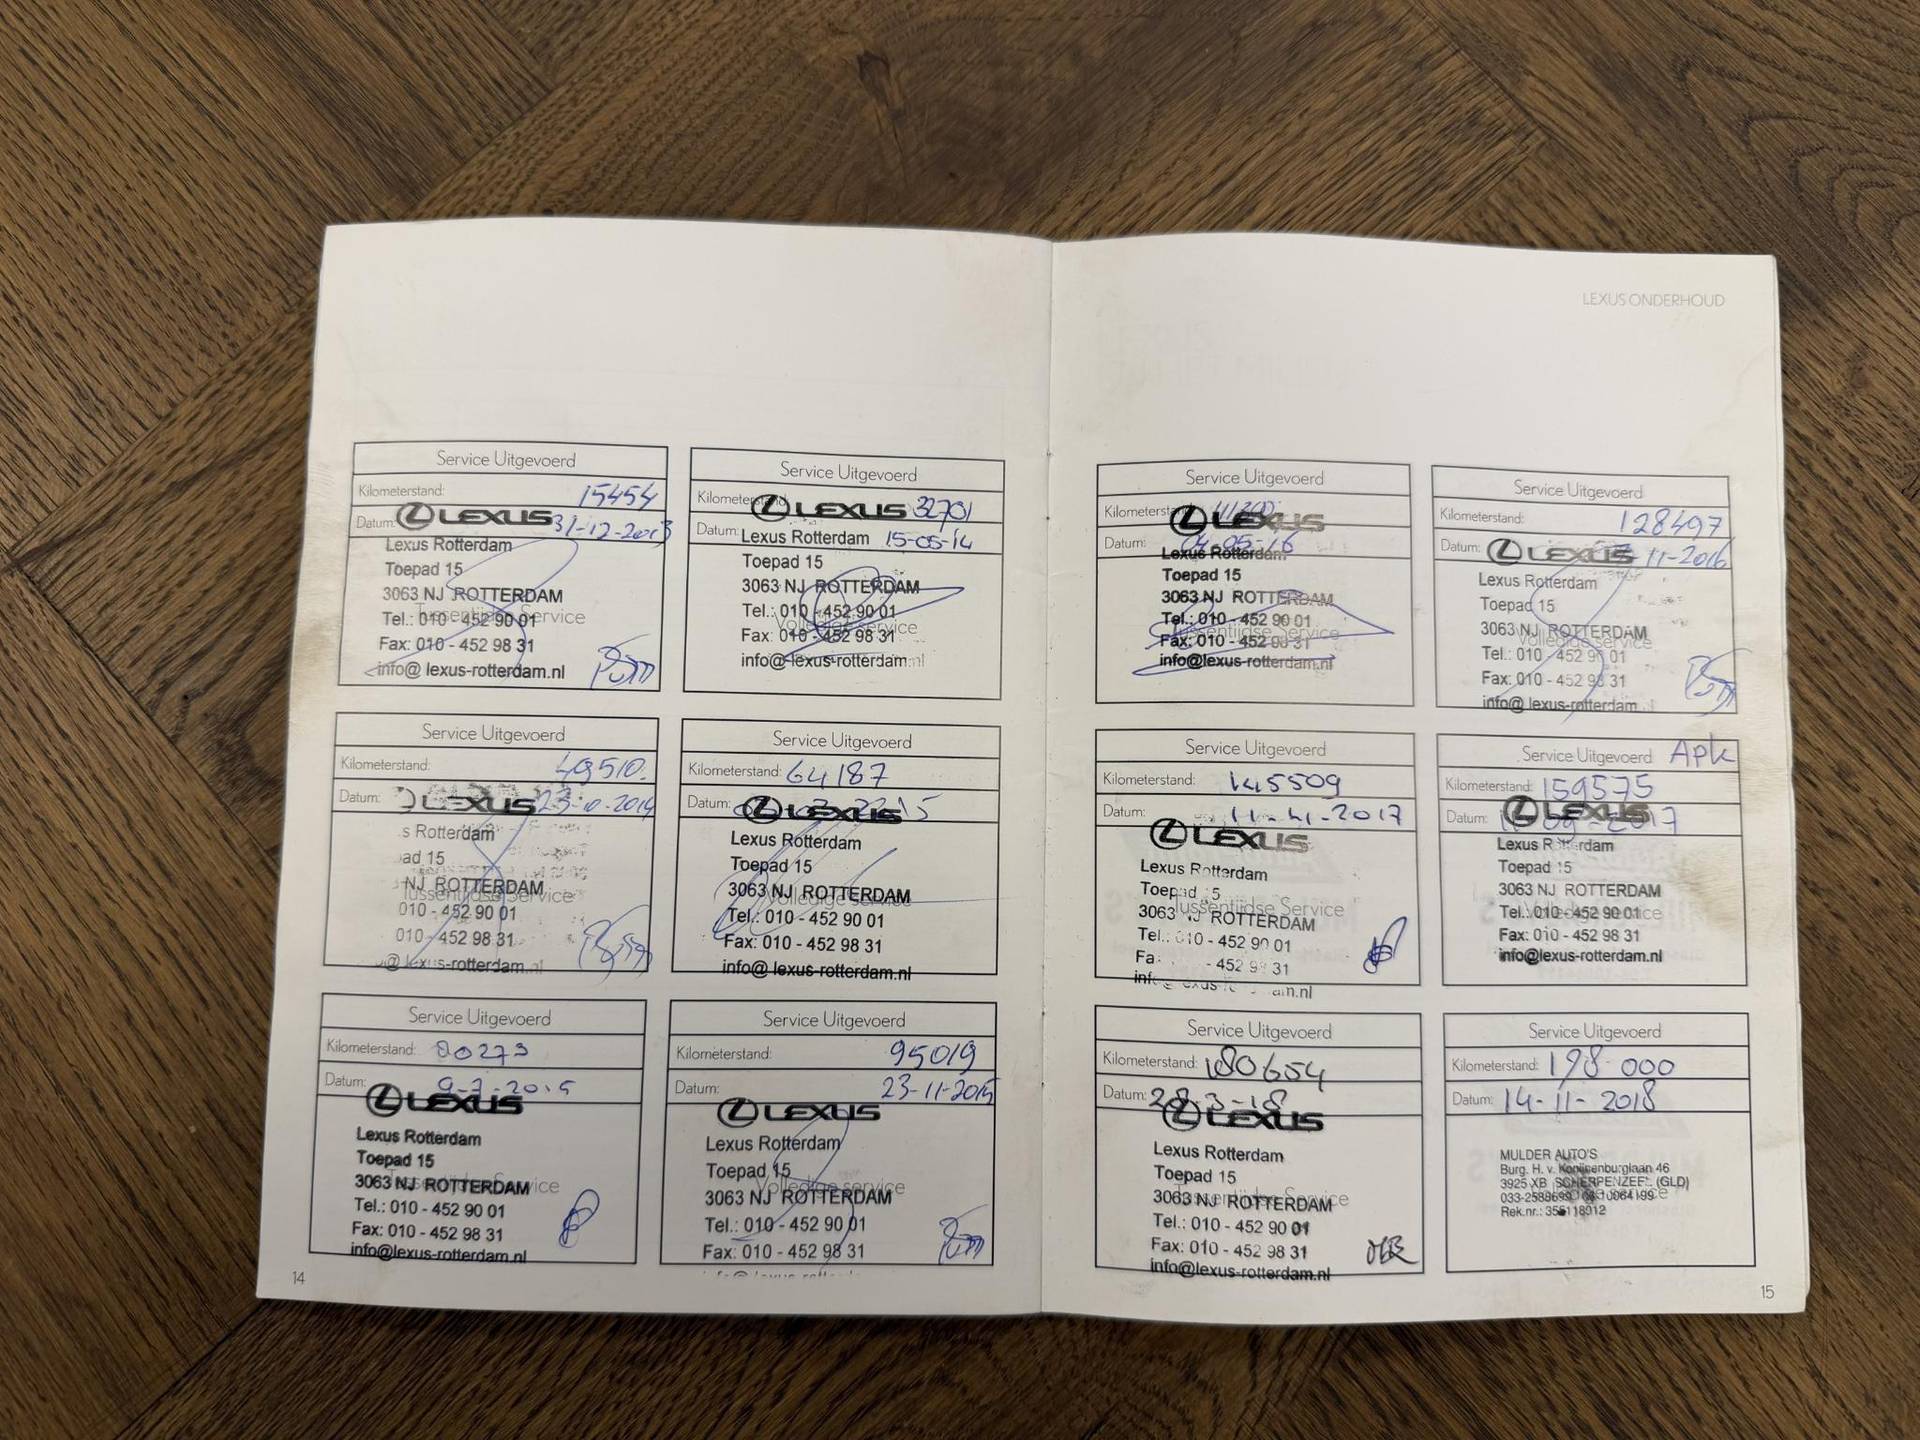 LEXUS ONDERHOUD
Service Uitgevoerd
Kilometerstand: 15454
Datum: 31-12-2013
LEXUS
Lexus Rotterdam
Toepad 15
3063 NJ ROTTERDAM
Tussentijdse Service
Tel.: 010 - 452 90 01
Fax: 010 - 452 98 31
info@lexus-rotterdam.nl
Service Uitgevoerd
Kilometerstand 32701
LEXUS
Datum: 15-05-14
Lexus Rotterdam
Toepad 15
3063 NJ ROTTERDAM
Tel.: 010 - 452 90 01
Volledige service
Fax: 010 - 452 98 31
info@lexus-rotterdam.nl
Service Uitgevoerd
Kilometerstand: 49510.
Datum: 23-10-2014
LEXUS
s Rotterdam
ad 15
NJ ROTTERDAM
Tussentijdse Service
010 - 452 90 01
010 - 452 98 31
@lexus-rotterdam.nl
Service Uitgevoerd
Kilometerstand: 64187
Datum:
LEXUS
Lexus Rotterdam
Toepad 15
3063 NJ ROTTERDAM
Volledige service
Tel.: 010 - 452 90 01
Fax: 010 - 452 98 31
info@lexus-rotterdam.nl
Service Uitgevoerd
Kilometerstand: 80273
Datum: 9-7-2015
LEXUS
Lexus Rotterdam
Toepad 15
3063 NJ ROTTERDAM
Tussentijdse Service
Tel.: 010 - 452 90 01
Fax: 010 - 452 98 31
info@lexus-rotterdam.nl
Service Uitgevoerd
Kilometerstand: 95019
Datum: 23-11-2015
LEXUS
Lexus Rotterdam
Toepad 15
Volledige service
3063 NJ ROTTERDAM
Tel.: 010 - 452 90 01
Fax: 010 - 452 98 31
14
Service Uitgevoerd
Kilometerstand
LEXUS
Datum: 04-05-16
Lexus Rotterdam
Toepad 15
3063 NJ ROTTERDAM
Tel.: 010 - 452 90 01
Tussentijdse Service
Fax: 010 - 452 98 31
info@lexus-rotterdam.nl
Service Uitgevoerd
Kilometerstand: 128497
Datum: 11-2016
LEXUS
Lexus Rotterdam
Toepad 15
3063 NJ ROTTERDAM
Volledige service
Tel.: 010 - 452 90 01
Fax: 010 - 452 98 31
info@lexus-rotterdam
Service Uitgevoerd
Kilometerstand: 145509
Datum: 11-4-2017
LEXUS
Lexus Rotterdam
Toepad 15
Tussentijdse Service
3063 NJ ROTTERDAM
Tel.: 010 - 452 90 01
Fa 452 98 31
Service Uitgevoerd Apk
Kilometerstand: 159575
Datum: 09-2017
LEXUS
Lexus Rotterdam
Toepad 15
3063 NJ ROTTERDAM
Volledige service
Tel.: 010 - 452 90 01
Fax: 010 - 452 98 31
info@lexus-rotterdam.nl
Service Uitgevoerd
Kilometerstand: 180654
Datum: 28-3-18
LEXUS
Lexus Rotterdam
Toepad 15
Tussentijdse Service
3063 NJ ROTTERDAM
Tel.: 010 - 452 90 01
Fax: 010 - 452 98 31
info@lexus-rotterdam.nl
Service Uitgevoerd
Kilometerstand: 198-000
Datum: 14-11-2018
MULDER AUTO'S
Burg. H. v. Konijnenburglaan 46
3925 XB SCHERPENZEEL (GLD)
service
Rek.nr.: 355118912
15